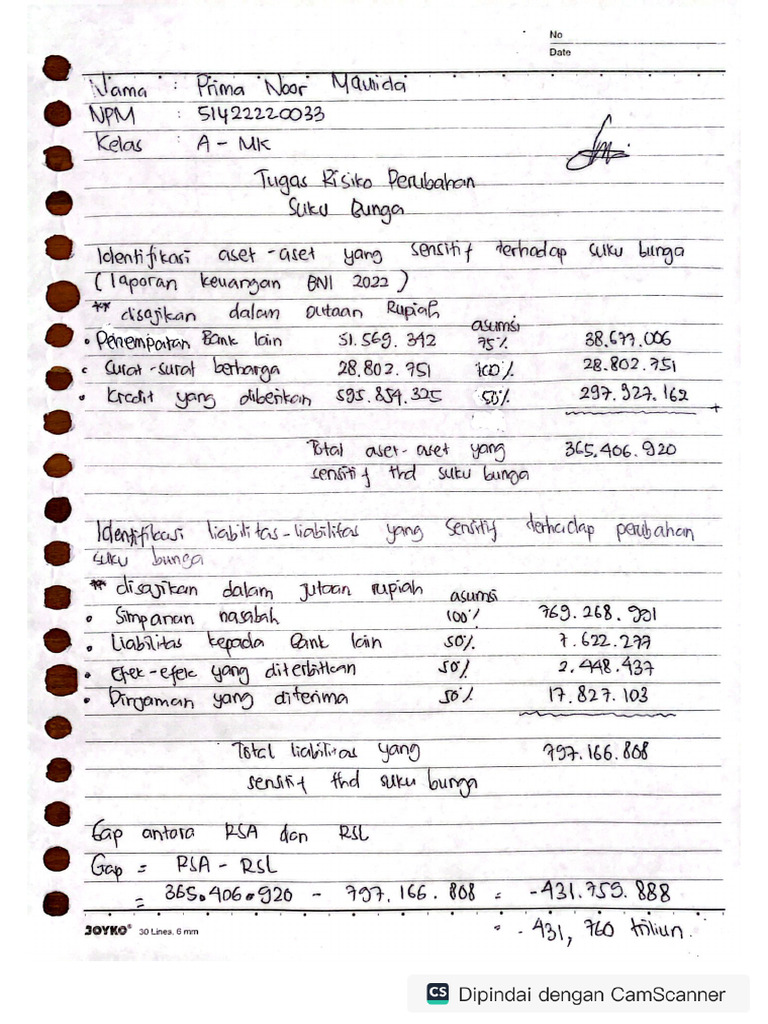 No
Date
Nama : Prima Noor Maurida
NPM : 51422220033
Kelas : A - MK
Tugas Risiko Perubahan
Suku Bunga
Identifikasi aset-aset yang sensitif terhadap suku bunga
(laporan keuangan BNI 2022)
** disajikan dalam Jutaan Rupiah
asumsi
• Penempatan Bank lain 51.569.342 75% 38.677.006
• Surat-surat berharga 28.802.751 100% 28.802.751
• Kredit yang diberikan 595.854.325 50% 297.927.162 +
Total aset-aset yang 365.406.920
sensitif thd suku bunga
Identifikasi liabilitas-liabilitas yang sensitif terhadap perubahan
suku bunga
** disajikan dalam jutaan rupiah asumsi
• Simpanan nasabah 100% 769.268.991
• Liabilitas kepada Bank lain 50% 7.622.277
• Efek-efek yang diterbitkan 50% 2.448.437
• Pinjaman yang diterima 50% 17.827.103
Total liabilitas yang 797.166.808
sensitif thd suku bunga
Gap antara RSA dan RSL
Gap = RSA - RSL
= 365.406.920 - 797.166.808 = -431.759.888
= -431,760 triliun.
JOYKO® 30 Lines, 6 mm
CS Dipindai dengan CamScanner